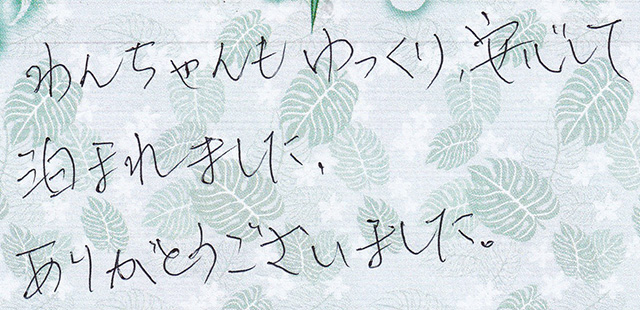 わんちゃんもゆっくり、安心して
泊まれました、
ありがとうございました。